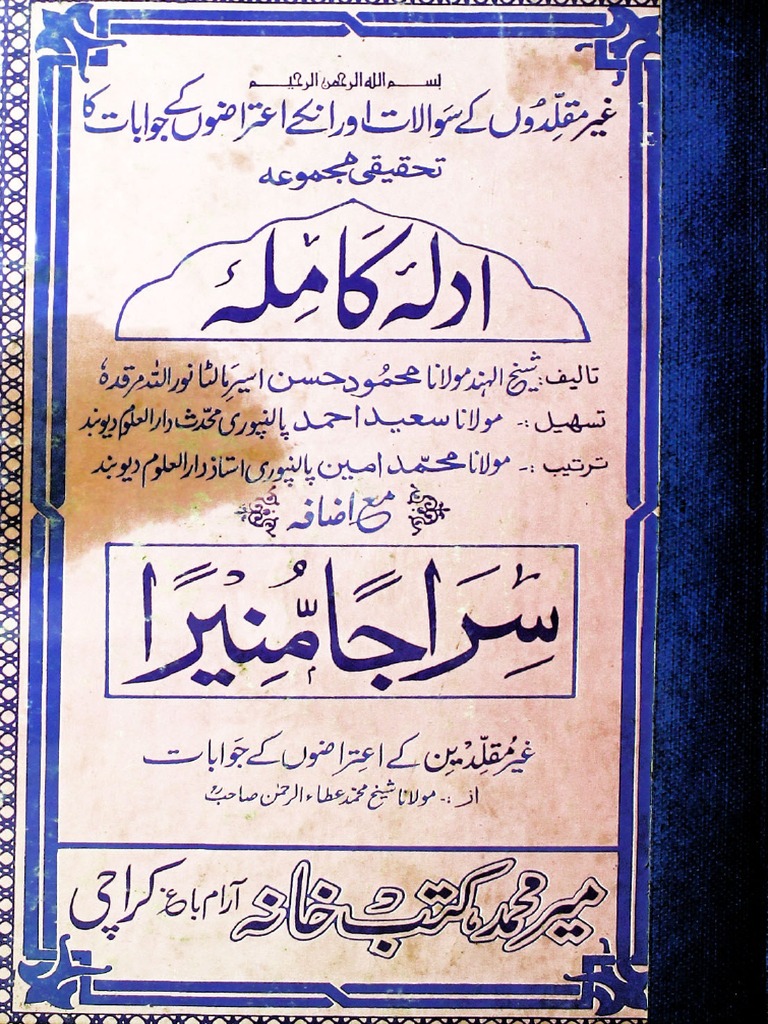 بسم الله الرحمن الرحيم
غیر مقلّدوں کے سوالات اور انکے اعتراضوں کے جوابات کا
تحقیقی مجموعہ
ادلۂ کَامِلہ
تالیف :۔ شیخ الہند مولانا محمود حسن اسیرِ مالٹا نور اللہ مرقدہٗ
تسہیل :۔ مولانا سعید احمد پالنپوری محدّث دارالعلوم دیوبند
ترتیب :۔ مولانا محمّد امین پالنپوری استاذ دارالعلوم دیوبند
مع اضافہ
سِرَاجًا مُّنِیْرًا
غیر مُقلّدِین کے اعتِراضوں کے جَوابات
از :۔ مولانا شیخ محمد عطاء الرحمٰن صاحبؒ
میر محمد، کتب خانہ آرام باغ کراچی